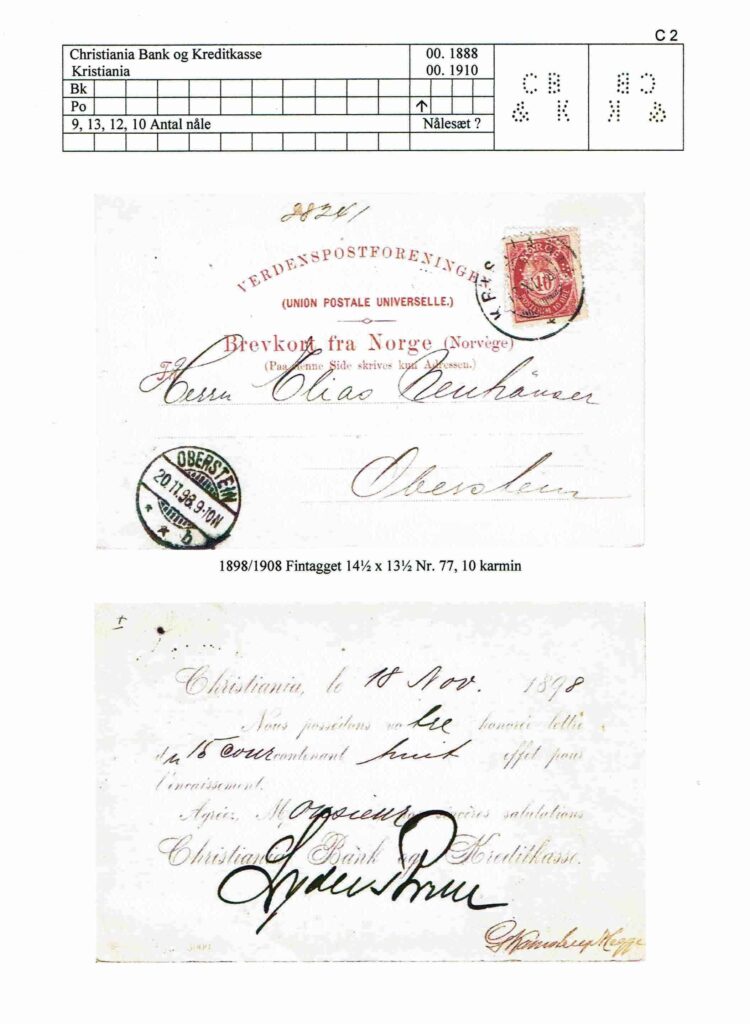 C 2
Christiania Bank og Kreditkasse
00. 1888
Kristiania
00. 1910
Bk
Po
9, 13, 12, 10 Antal nåle
Nålesæt ?
C B
& K
28241
VERDENSPOSTFORENINGEN
(UNION POSTALE UNIVERSELLE.)
Brevkort fra Norge (Norvège)
(Paa denne Side skrives kun Adressen.)
NORGE
10
Til
Herrn Elias Neuhäuser
Oberstein
OBERSTEIN
20.11.98.9-10N
* * b
1898/1908 Fintagget 14½ x 13½ Nr. 77, 10 karmin
Christiania, le 18 Nov. 1898
Nous possédons votre honorée lettre
du 15 cour contenant huit effet pour
l'encaissement.
Agréez, Monsieur sincères salutations
Christiania Bank og Kreditkasse.